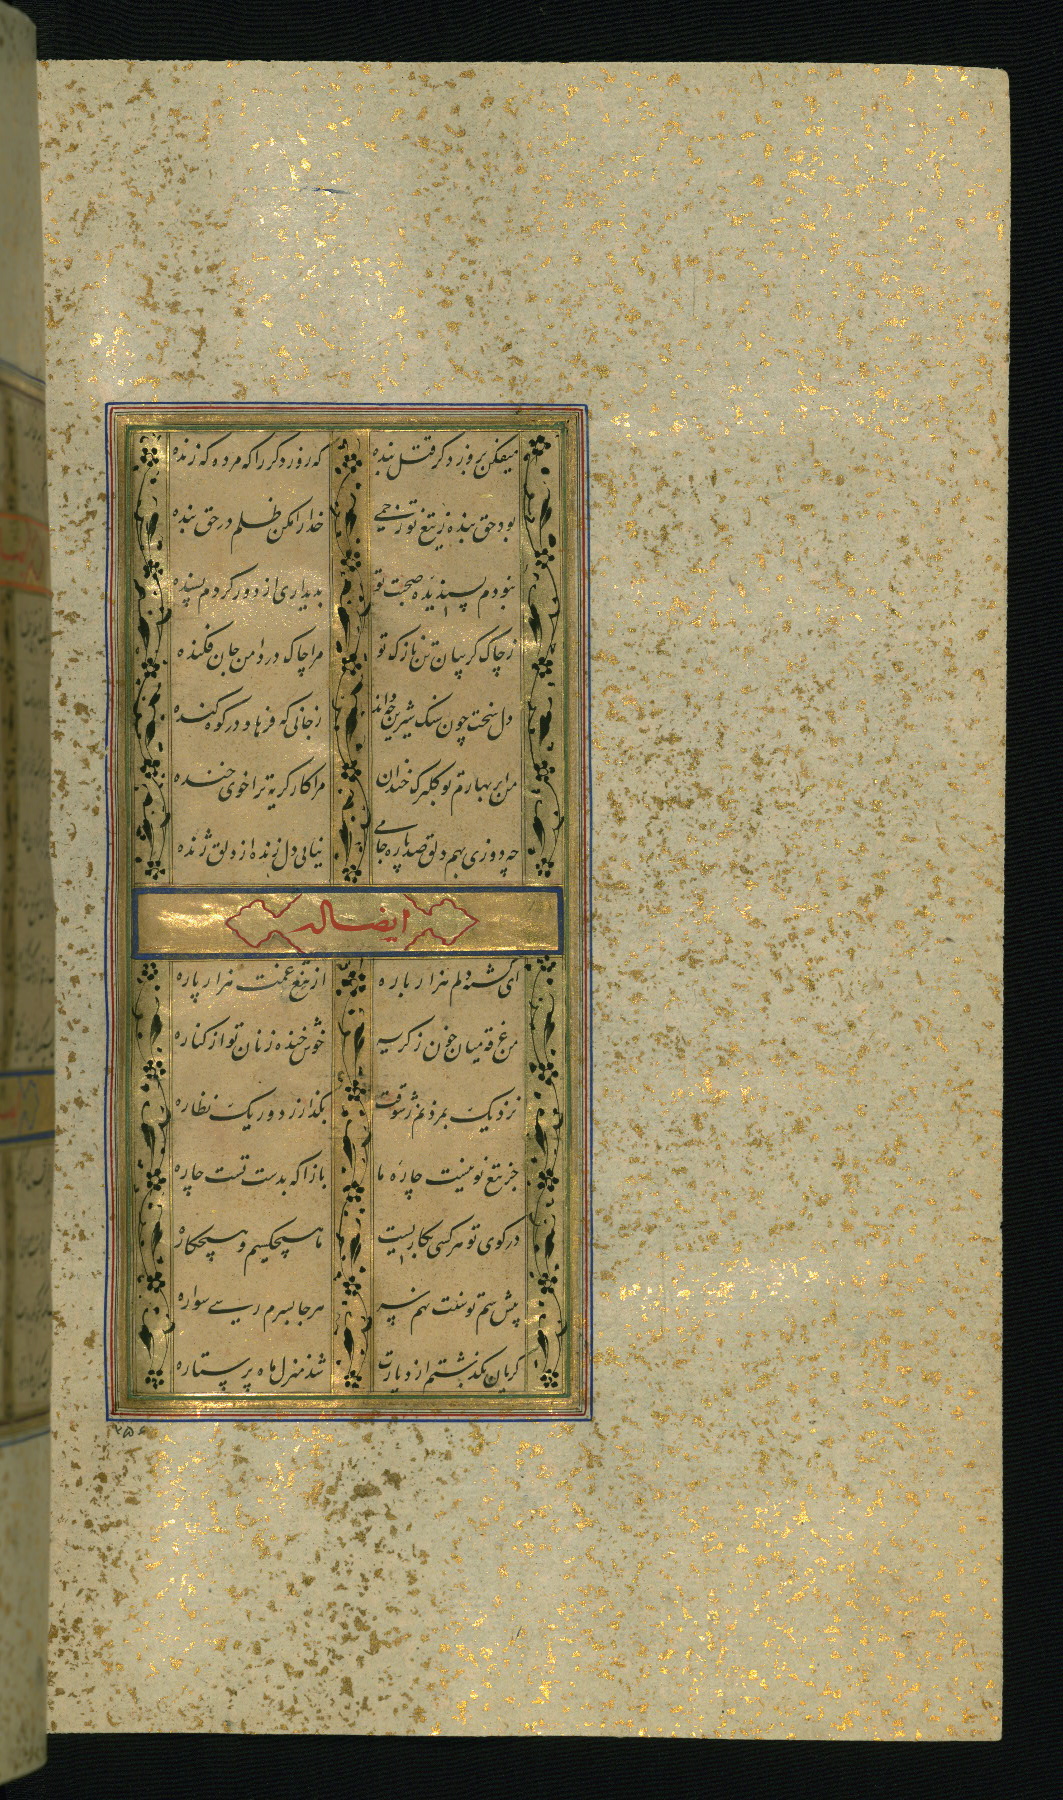 میفکن بروز دگر قتل بنده که روز دگر را که مرده که زنده
بود حق بنده ز تیغ تو زخمی خدا را مکن ظلم در حق بنده
نبودم پسندیده صحبت تو بدیداری از دور کردم پسنده
ز چاک گریبان تن نازک تو مرا چاک در دامن جان فکنده
دل سخت چون سنگ شیرین چه داند ز جانی که فرهاد در کوه کنده
من ابر بهارم تو گلبرگ خندان مرا کار گریه ترا خوی خنده
چه دوزی بهم دلق صد پاره جامی نیابی دل زنده از دلق ژنده
ایضا له
ای گشته دلم هزار باره از تیغ غمت هزار پاره
من غرقه میان خون ز گریه خوش خنده زنان تو از کناره
نزدیک بمردنم ز شوقت بگذار ز دور یک نظاره
جز تیغ تو نیست چاره ما باز آ که بدست تست چاره
در کوی تو هر کسی بکاریست ما هیچکسیم و هیچکاره
پیش ستم تو سنت بهم سر هر جا بسرم رسی سواره
گریان بگذشتم از دیارت شد منزل ماه پر ستاره
۲۵۶